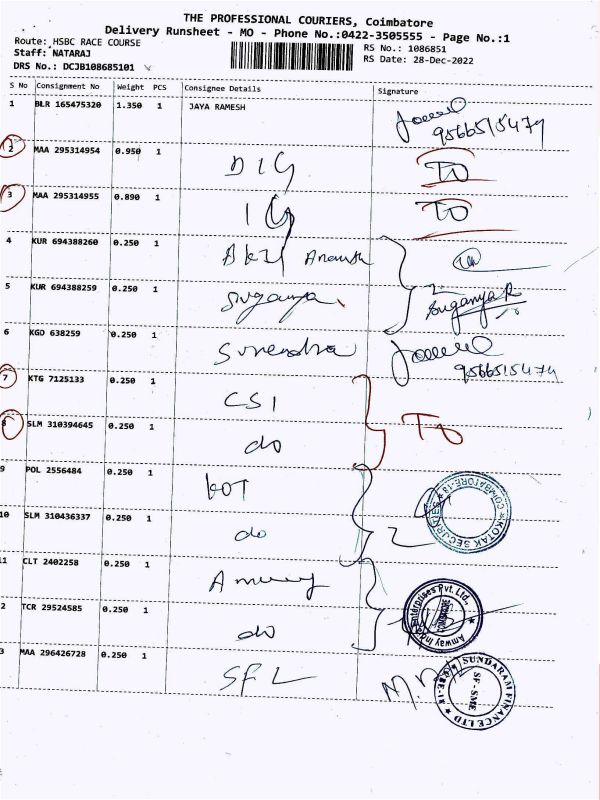 THE PROFESSIONAL COURIERS, Coimbatore
Delivery Runsheet - MO - Phone No.:0422-3505555 - Page No.:1
Route: HSBC RACE COURSE
RS No.: 1086851
Staff: NATARAJ
RS Date: 28-Dec-2022
DRS No.: DCJB108685101
S No Consignment No Weight PCS Consignee Details Signature
1 BLR 165475320 1.350 1 JAYA RAMESH
9566515479
2 MAA 295314954 0.950 1 DIG TO
3 MAA 295314955 0.890 1 IG TO
4 KUR 694388260 0.250 1
5 KUR 694388259 0.250 1 Suganya Suganya R
6 KGD 638259 0.250 1 Surendra
9566515479
7 KTG 7125133 0.250 1 CSI
8 SLM 310394645 0.250 1 do TO
9 POL 2556484 0.250 1 KOT
KOTAK SECURITIES COIMBATORE-18
10 SLM 310436337 0.250 1 do 2
11 CLT 2402258 0.250 1 Amway
Amway India Enterprises Pvt. Ltd.,
2 TCR 29524585 0.250 1 do
3 MAA 296426728 0.250 1 SFL
SUNDARAM FINANCE LTD
SF - SME